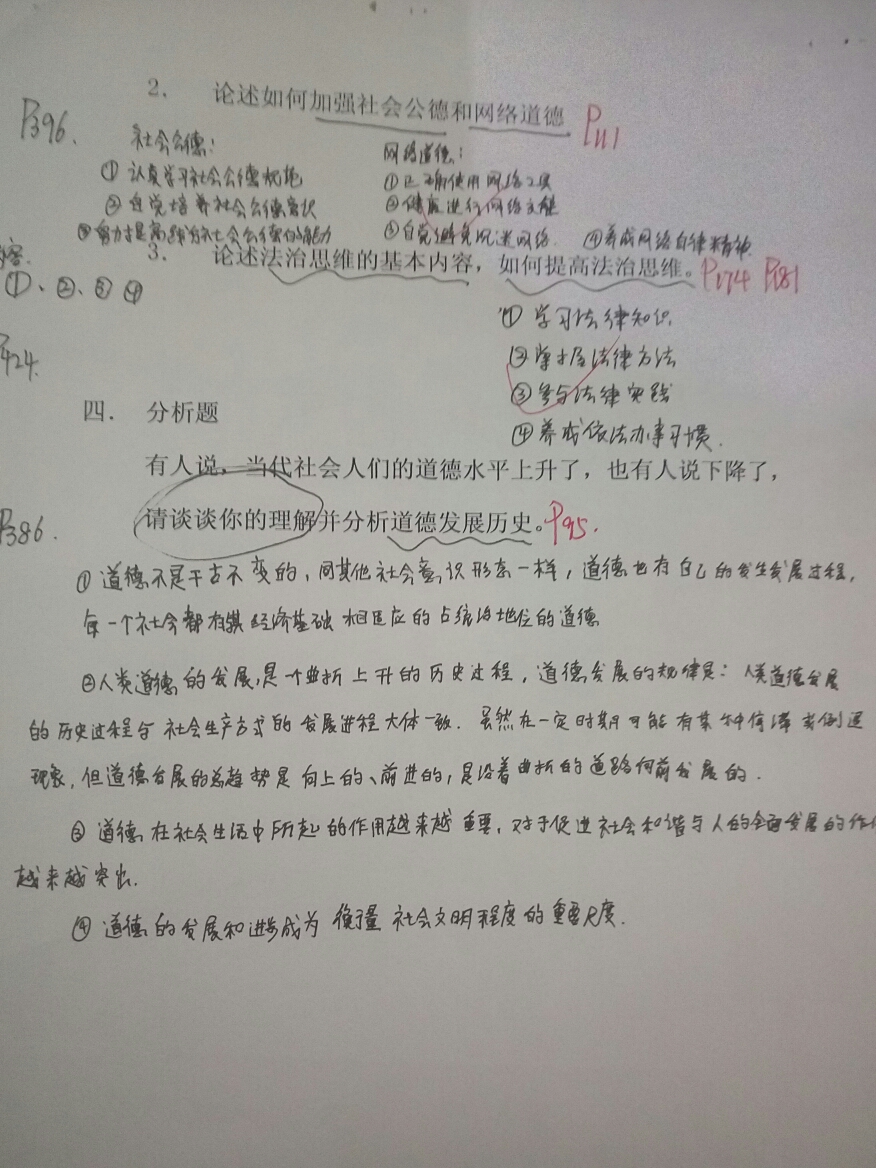 2. 论述如何加强社会公德和网络道德 P111
P396.
社会公德：
网络道德：
① 认真学习社会公德规范
① 正确使用网络工具
② 自觉培养社会公德意识
② 健康进行网络交往
③ 努力提高践行社会公德的能力
③ 自觉避免沉迷网络 ④ 养成网络自律精神
3. 论述法治思维的基本内容，如何提高法治思维。P174 P181
①、②、③ ④
① 学习法律知识.
P424.
② 掌握法律方法
③ 参与法律实践
④ 养成依法办事习惯.
四. 分析题
有人说，当代社会人们的道德水平上升了，也有人说下降了，
请谈谈你的理解并分析道德发展历史。P95.
P386.
① 道德不是千古不变的，同其他社会意识形态一样，道德也有自己的发生发展过程，
每一个社会都有其经济基础相适应的占统治地位的道德
② 人类道德的发展，是一个曲折上升的历史过程，道德发展的规律是：人类道德发展
的历史过程与社会生产方式的发展进程大体一致. 虽然在一定时期可能有某种停滞或倒退
现象，但道德发展的总趋势是向上的、前进的，是沿着曲折的道路向前发展的.
③ 道德在社会生活中所起的作用越来越重要，对于促进社会和谐与人的全面发展的作
越来越突出.
④ 道德的发展和进步成为衡量社会文明程度的重要尺度.